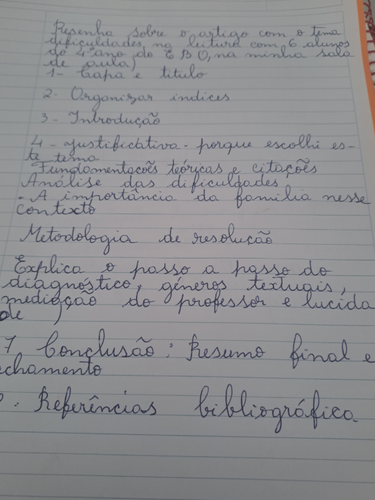 Resenha sobre o artigo com o tema
dificuldades na leitura com 6 alunos
do 4º ano do E B O, na minha sala
de aula,
1 - Capa e titulo
2. Organizar indices
3 - Introdução
4 - justificativa - porque escolhi es-
te tema
Fundamentações teóricas e citações
Análise das dificuldades
. A importância da família nesse
contexto
Metodologia de resolução
Explica o passo a passo do
diagnóstico, gêneros textuais,
mediação do professor e lucida
de,
7 Conclusão: Resumo final e
echamento
. Referências bibliográfica